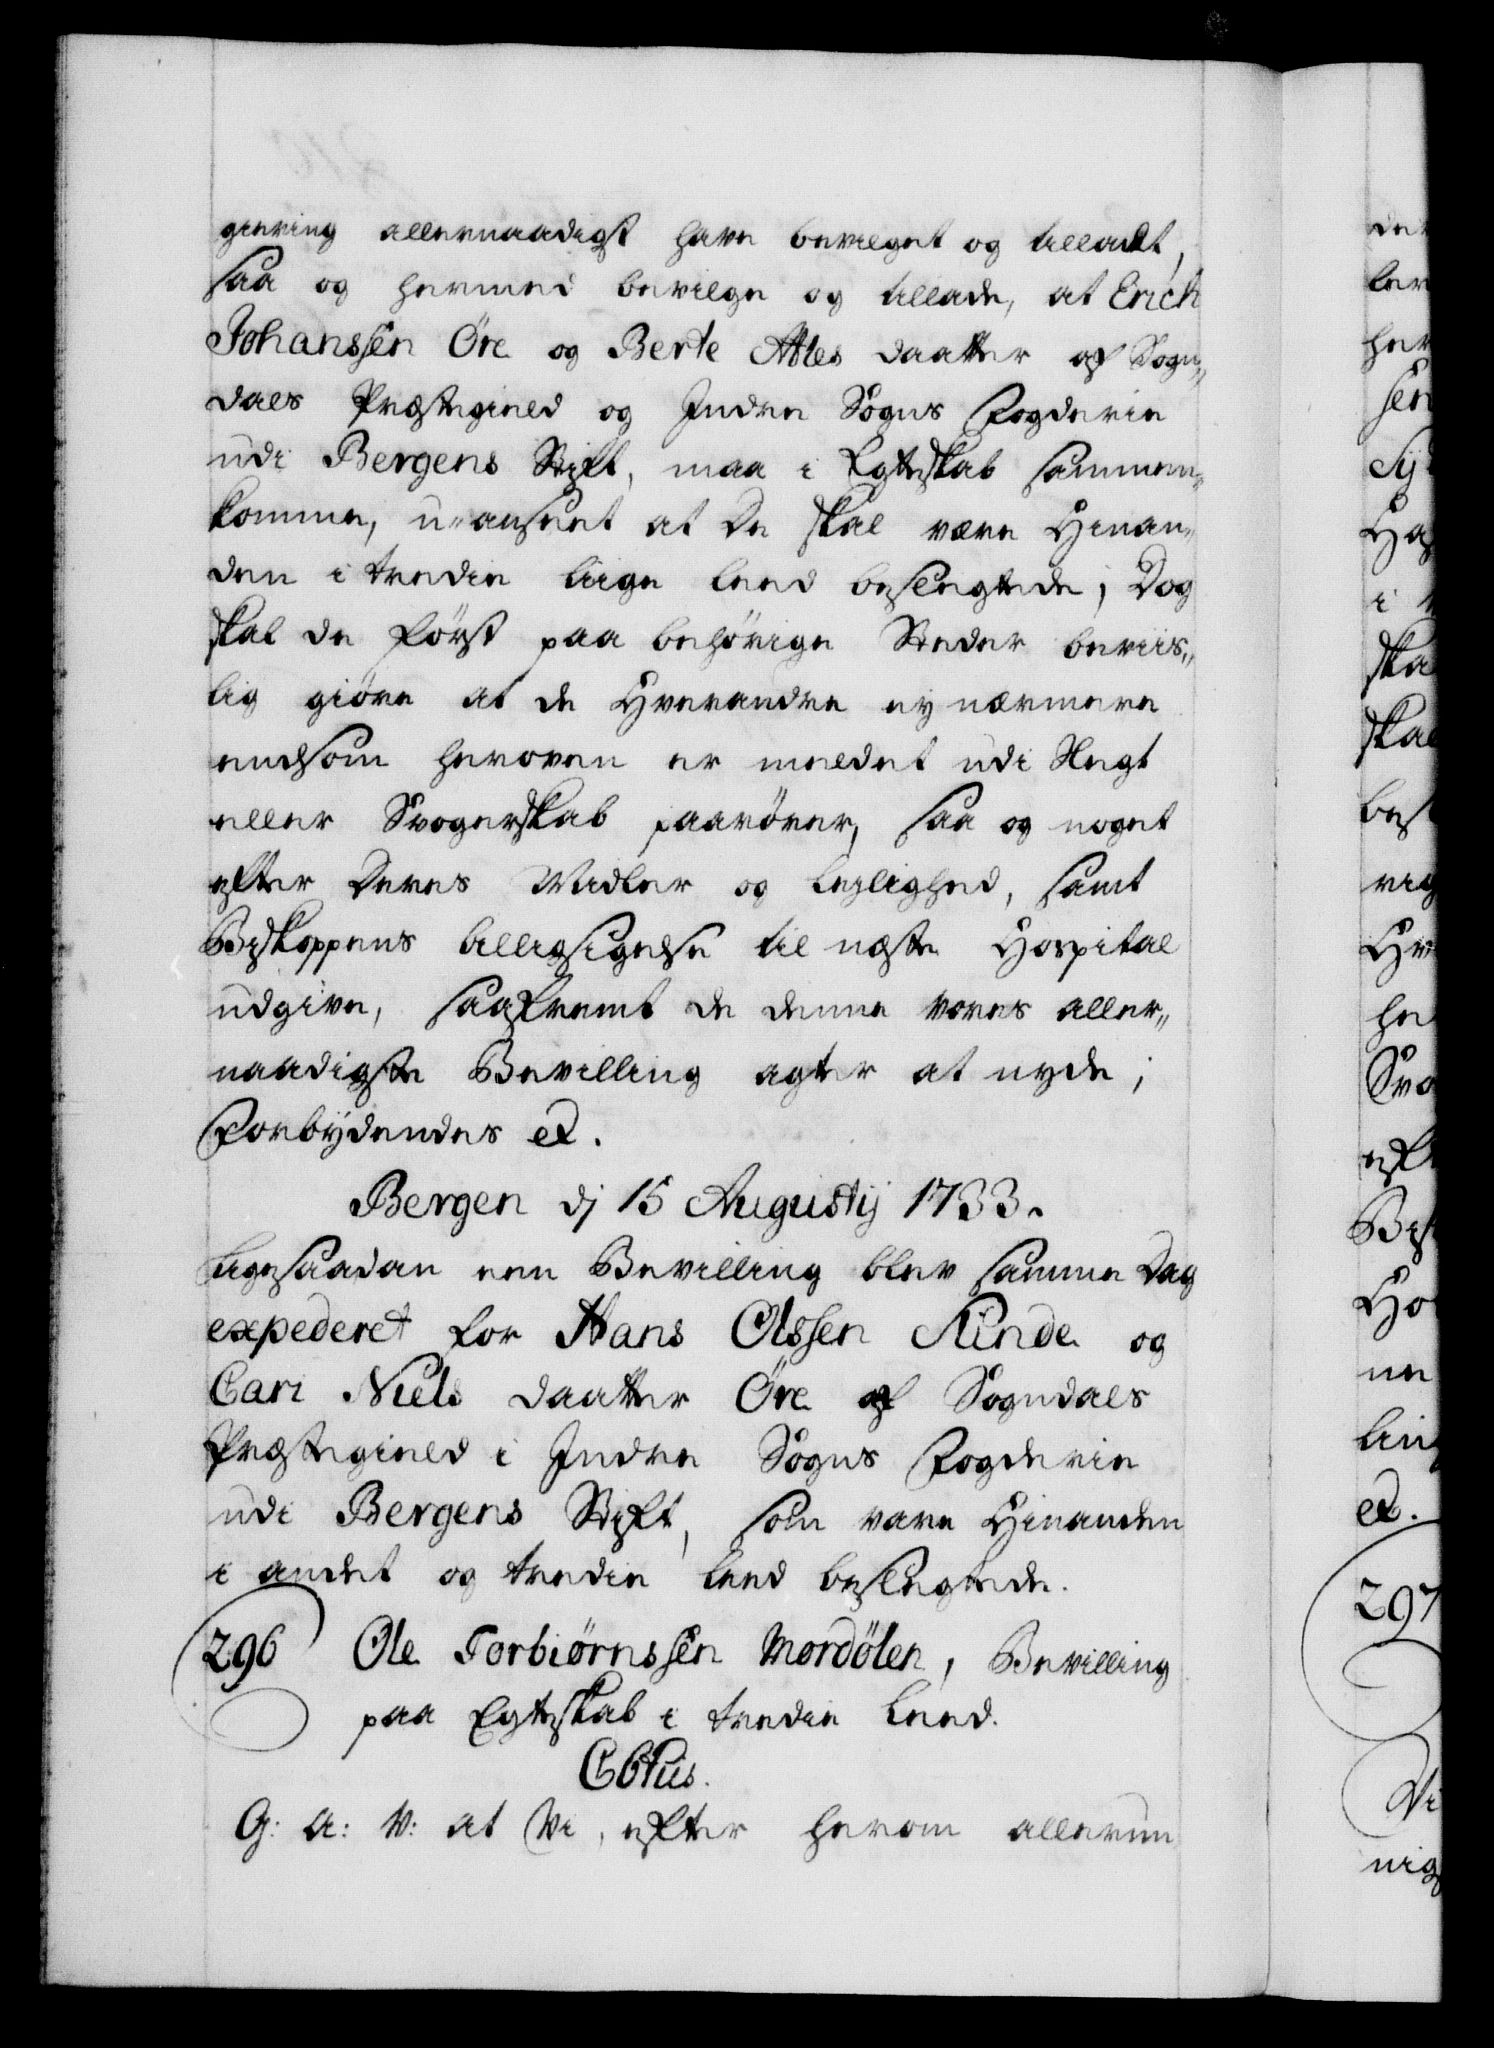 giering allernaadigst have bevilget og tilladt,
saa og hermed bevilge og tillade, at Erich
Johanssen Öre og Berte Atles daatter af Sogn,,
dals Præstegield og Indre Sogns Fogderie
udi Bergens Stift, maa i Egteskab sammen,,
komme, u-anseet at de skal være Hinan,,
den i tredie liige leed beslegtede; Dog
skal de först paa behörige Steder beviis,,
lig giöre at de Hverandre ey nærmere
endsom heroven er meldet udi Slegt
eller Svogerskab paarörer, saa og noget
efter Deres Midler og leylighed, samt
Biskoppens billigsigelse til næste Hospital
udgive, saafremt de denne vores aller,,
naadigste Bevilling agter at nyde;
Forbydendes etc.
Bergen dj 15 Augustij 1733.
Ligesaadan een Bevilling blev samme Dag
expederet for Hans Olssen Slinde og
Cari Niels daatter Öre af Sogndals
Præstegield i Indre Sogns Fogderie
udi Bergens Stift, som vare Hinanden
i andet og tredie leed beslegtede.
296 Ole Torbiörnssen Mordölen, Bevilling
paa Egteskab i tredie leed.
C6tus.
G: A: V: at Vi, efter herom allerun